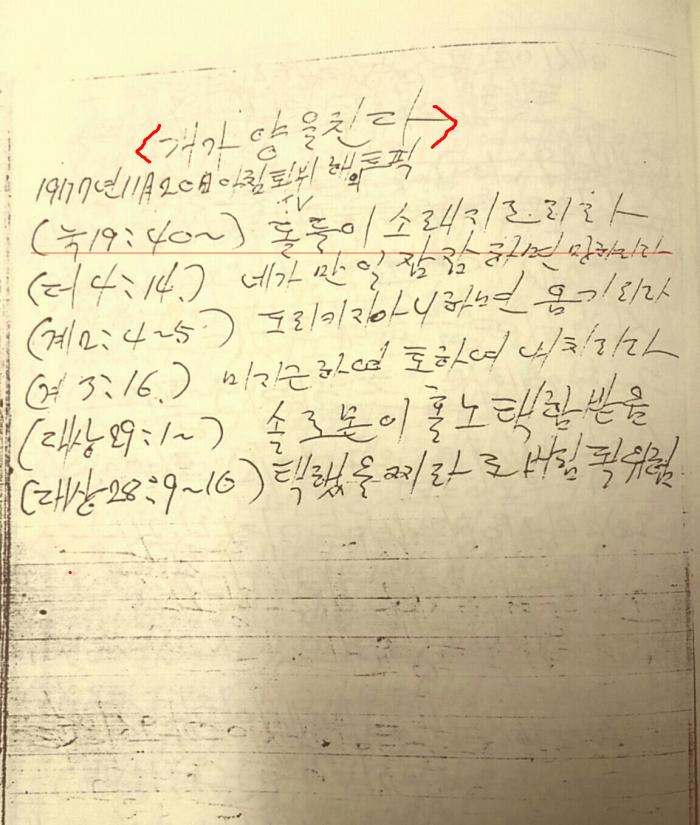 <개가 양을친다>
1977년11月20日아침 TV 해외토픽
(눅19:40~) 돌들이 소래지르리라
(더4:14.) 네가 만일 잠잠하면 망하리라
(계2:4~5) 도리키지아니하면 옴기리라
(계3:16.) 미지근하여 토하여 내치리라
(대상29:1~) 솔로몬이 홀노택함받음
(대상28:9~10) 택했을찌라로 버림